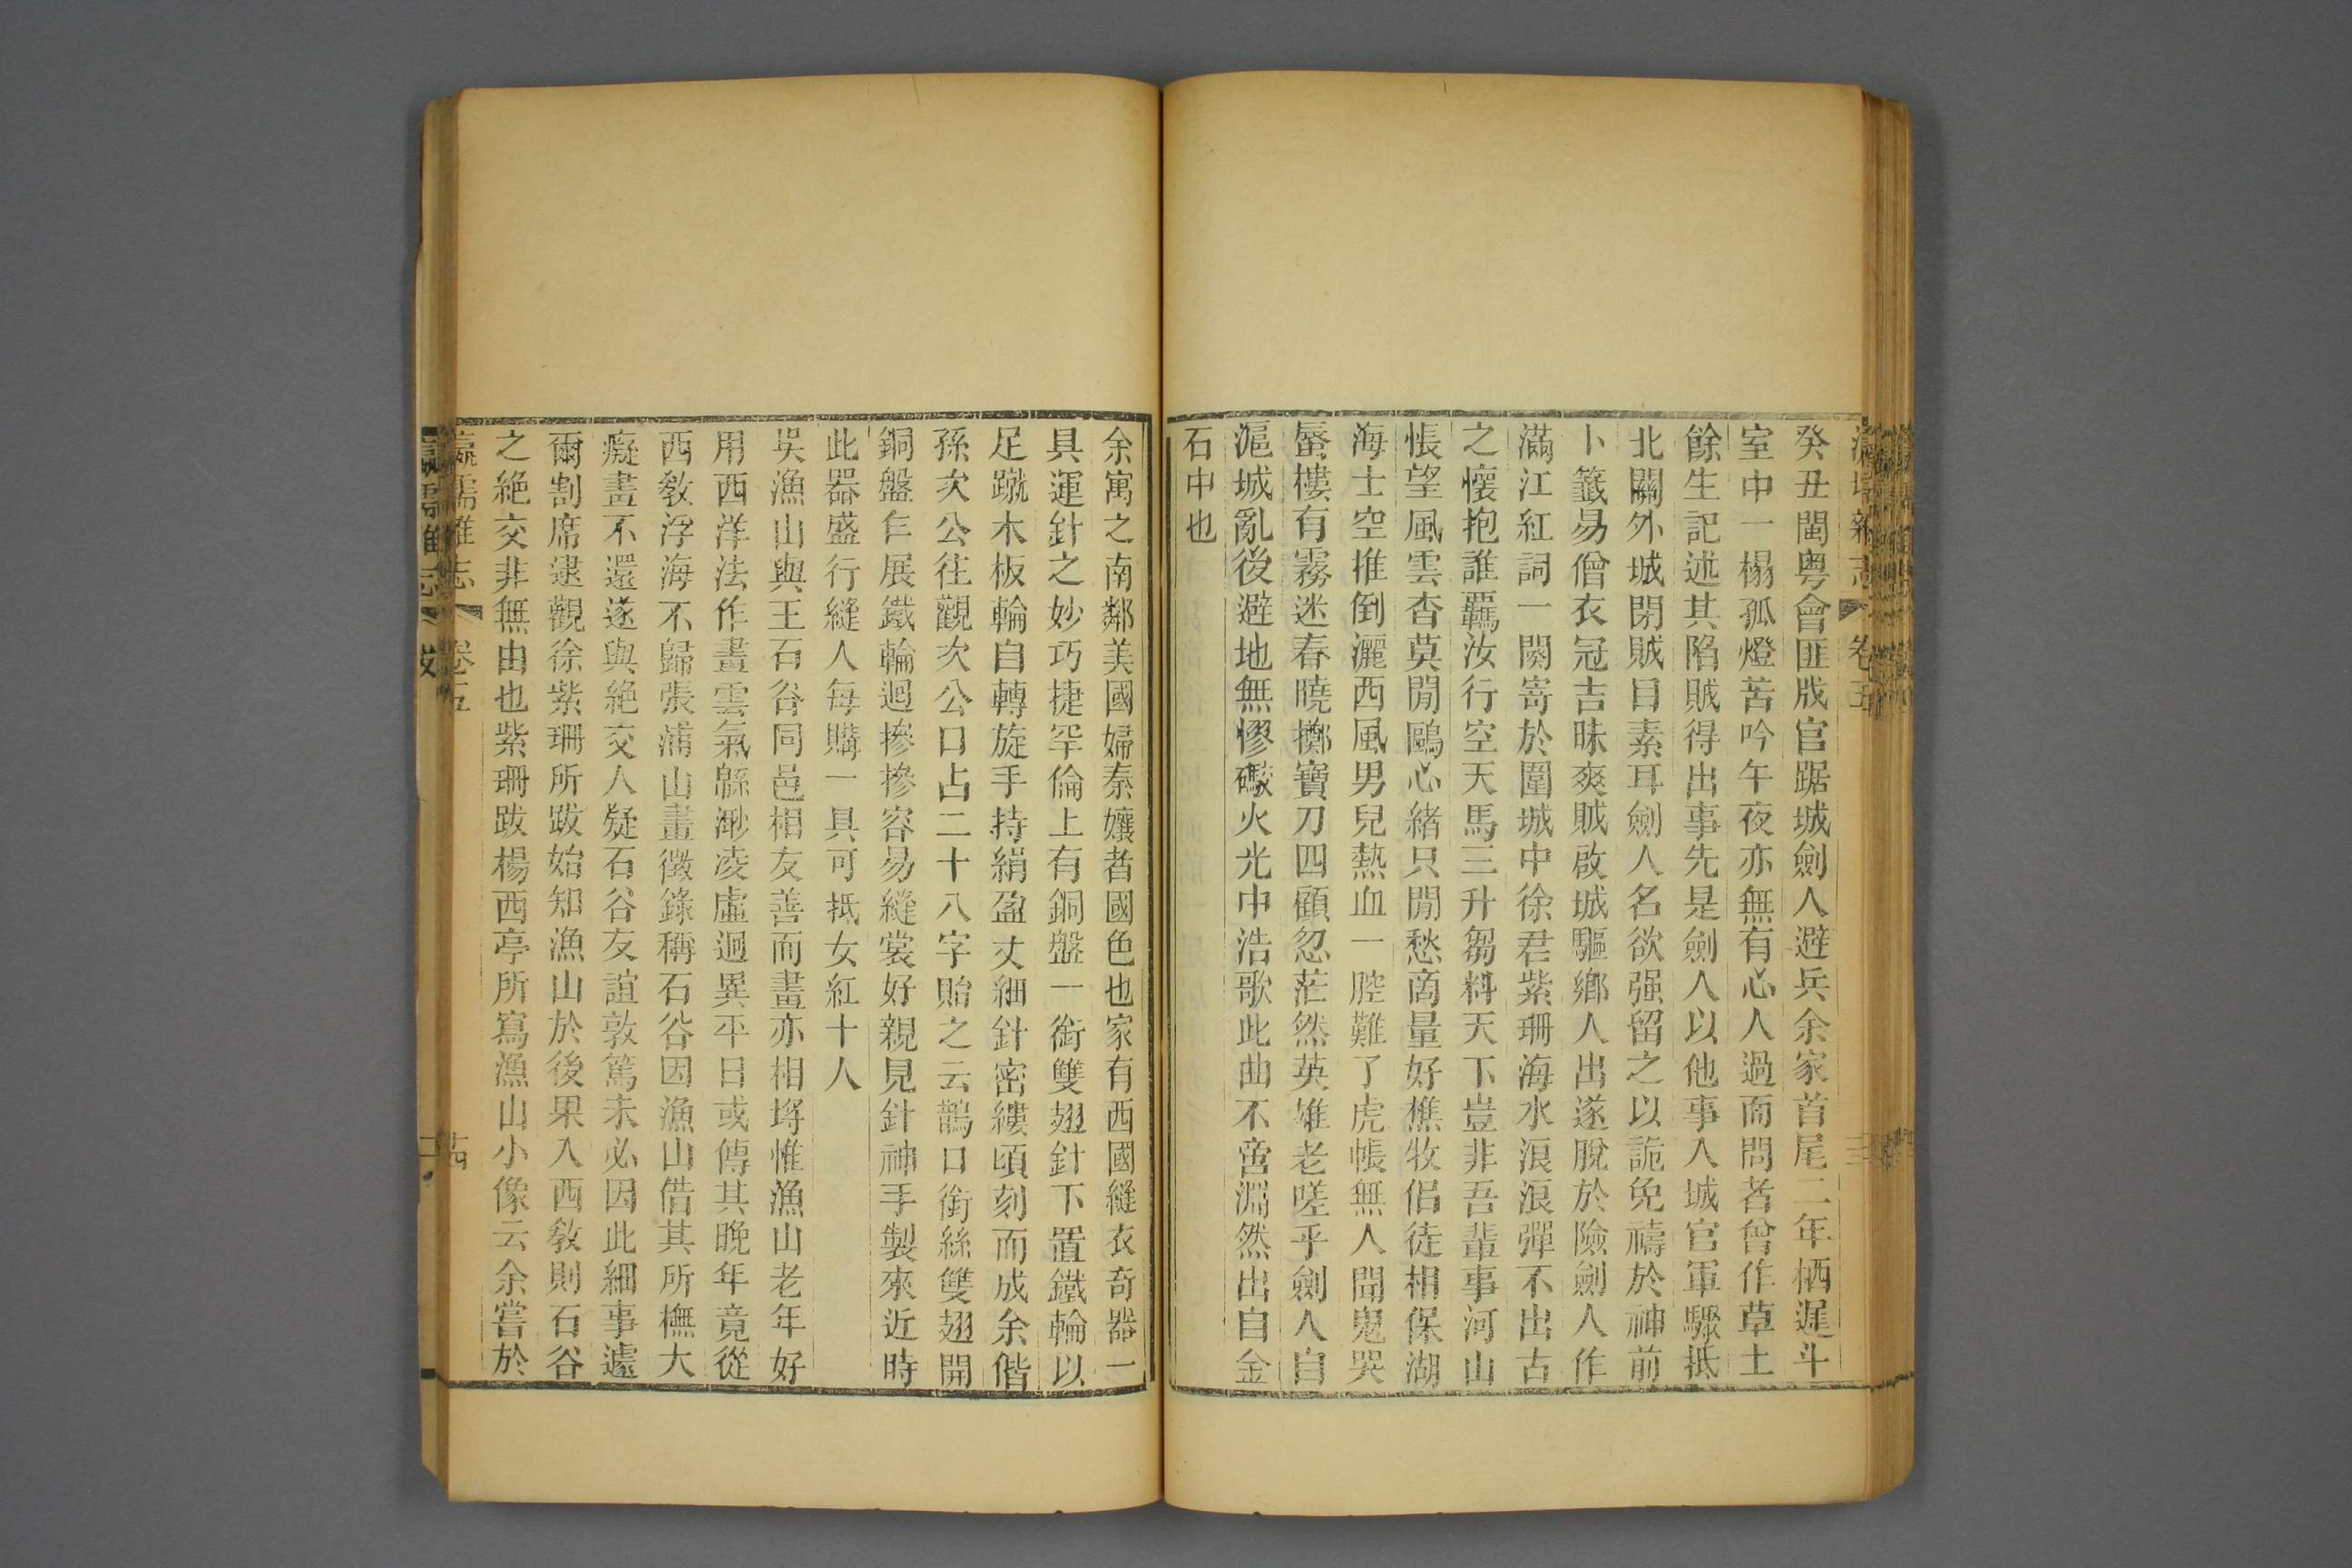 癸丑閩粤會匪戕官踞城劍人避兵余家首尾二年栖遲斗
室中一榻孤燈苦吟午夜亦無有心人過而問者曾作草土
餘生記述其陷賊得出事先是劍人以他事入城官軍驟抵
北關外城閉賊目素耳劍人名欲强留之以詭免禱於神前
卜籤易僧衣冠吉昧爽賊啟城驅鄉人出遂脫於險劍人作
滿江紅詞一闋寄於圍城中徐君紫珊海水浪浪彈不出古
之懷抱誰羈汝行空天馬三升芻料天下豈非吾輩事河山
悵望風雲杳莫閒鷗心緒只閒愁商量好樵牧侶徒相保湖
海士空推倒灑西風男兒熱血一腔難了虎帳無人聞鬼哭
蜃樓有霧迷春曉擲寶刀四顧忽茫然英雄老嗟乎劍人自
滬城亂後避地無憀礮火光中浩歌此曲不啻淵然出自金
石中也
瀛壖雜志 卷五
余寓之南鄰美國婦秦孃者國色也家有西國縫衣奇器一
具運針之妙巧捷罕倫上有銅盤一銜雙翅針下置鐵輪以
足蹴木板輪自轉旋手持絹盈丈細針密縷頃刻而成余偕
孫次公往觀次公口占二十八字貽之云鵲口銜絲雙翅開
銅盤乍展鐵輪迴摻摻容易縫裳好親見針神手製來近時
此器盛行縫人每購一具可抵女紅十人
吳漁山與王石谷同邑相友善而畫亦相埒惟漁山老年好
用西洋法作畫雲氣緜渺凌虛迥異平日或傳其晚年竟從
西敎浮海不歸張浦山畫徵錄稱石谷因漁山借其所橅大
癡畫不還遂與絕交人疑石谷友誼敦篤未必因此細事遽
爾割席逮觀徐紫珊所跋始知漁山於後果入西敎則石谷
之絕交非無由也紫珊跋楊西亭所寫漁山小像云余嘗於
瀛壖雜志 卷五